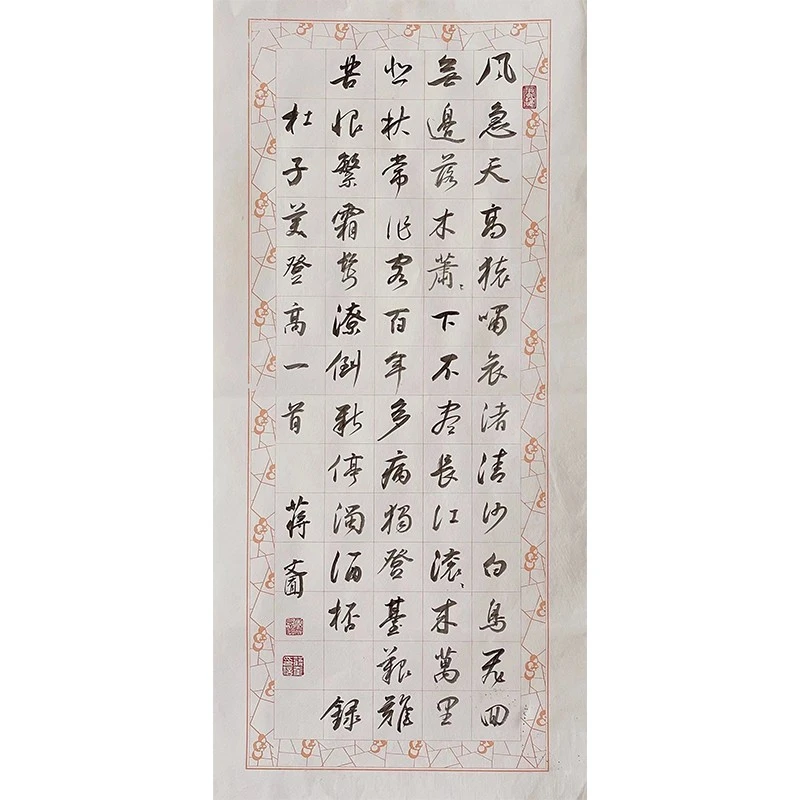 风急天高猿嘯哀渚清沙白鳥飛回
無邊落木蕭〻下不盡長江滾〻來萬里
悲秋常作客百年多病獨登臺艱難
苦恨繁霜鬢潦倒新停濁酒桮 錄
杜子美登高一首 蔣